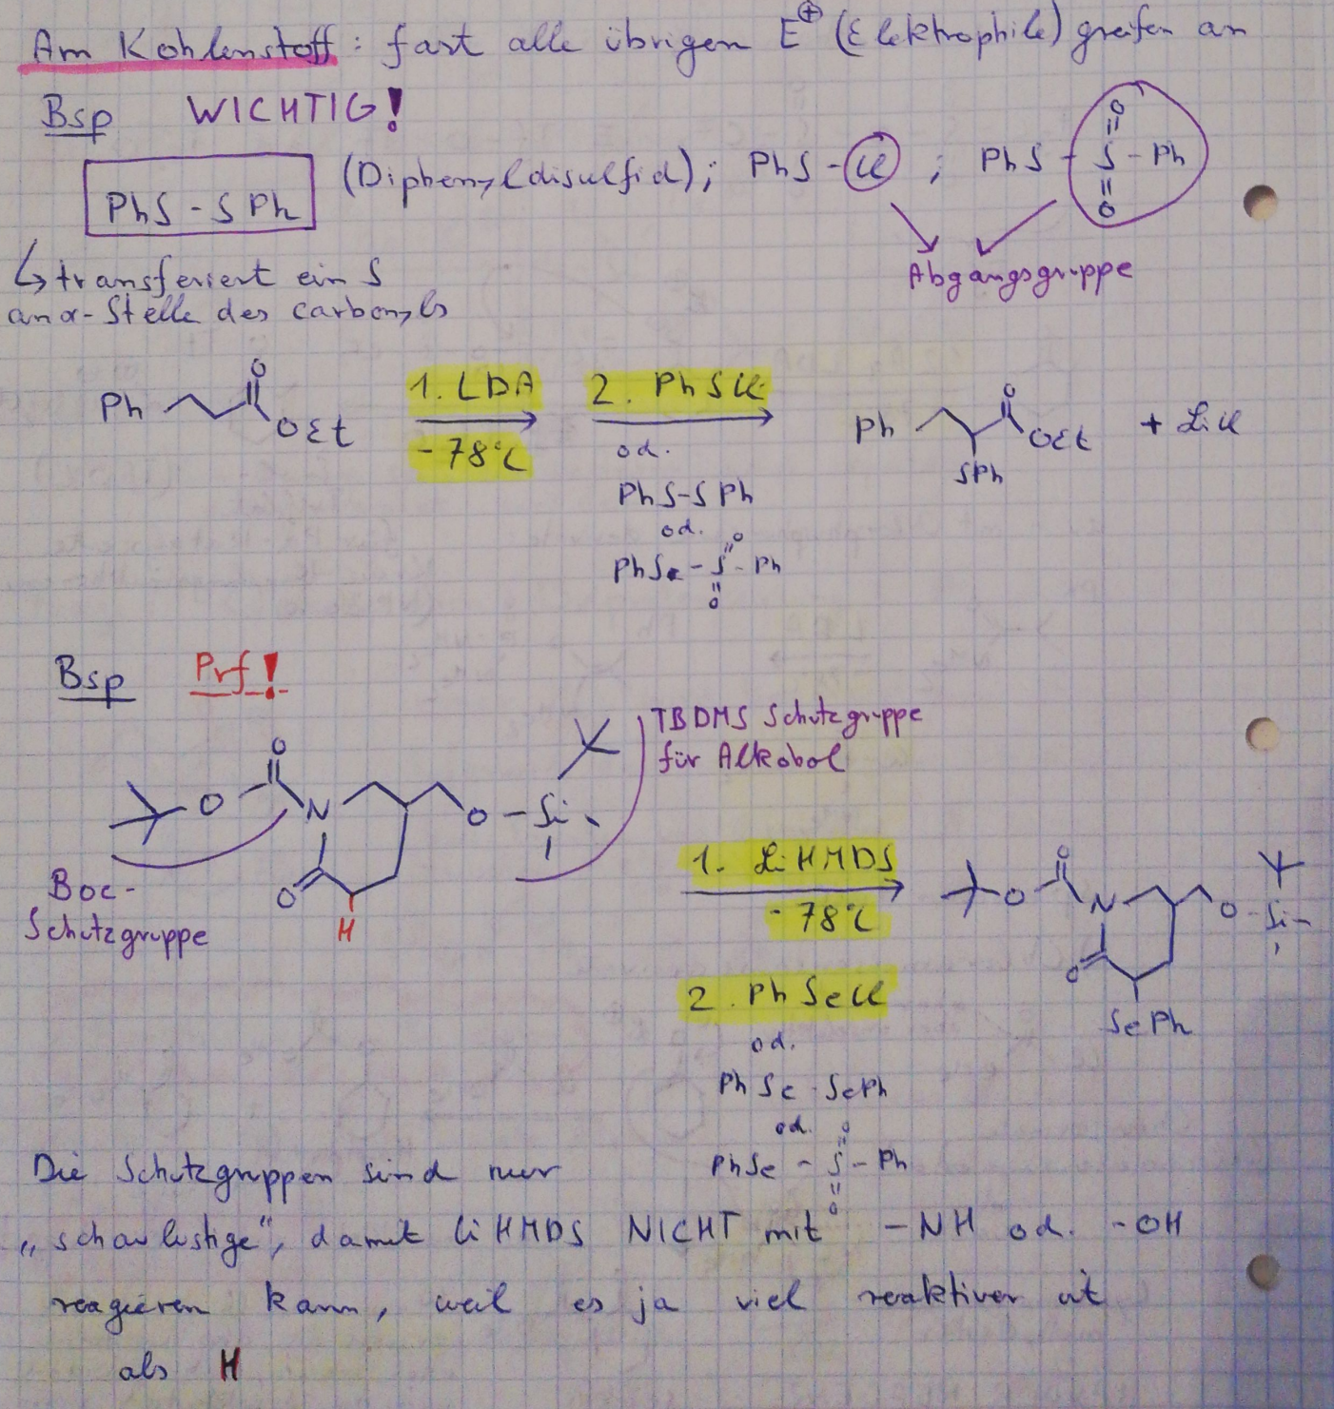 Am Kohlenstoff: fast alle übrigen E⊕ (Elektrophile) greifen an
Bsp WICHTIG!
PhS-SPh (Diphenyldisulfid); PhS-Cl ; PhS-S-Ph
O
O
Abgangsgruppe
↳ transferiert ein S
an α-Stelle des Carbonyls
Ph O OEt
1. LDA
-78°C
2. PhSCl
od.
PhS-SPh
od.
PhSe-S-Ph
O
O
Ph O OEt
SPh
+ LiCl
Bsp Prf!
TBDMS Schutzgruppe
für Alkohol
O
O N O-Si
O
H
Boc-
Schutzgruppe
1. LiHMDS
-78°C
2. PhSeCl
od.
PhSe-SePh
od.
O
PhSe-S-Ph
O
O
O N O-Si-
O
SePh
Die Schutzgruppen sind nur
„schaulustige", damit LiHMDS NICHT mit -NH od. -OH
reagieren kann, weil es ja viel reaktiver ist
als H